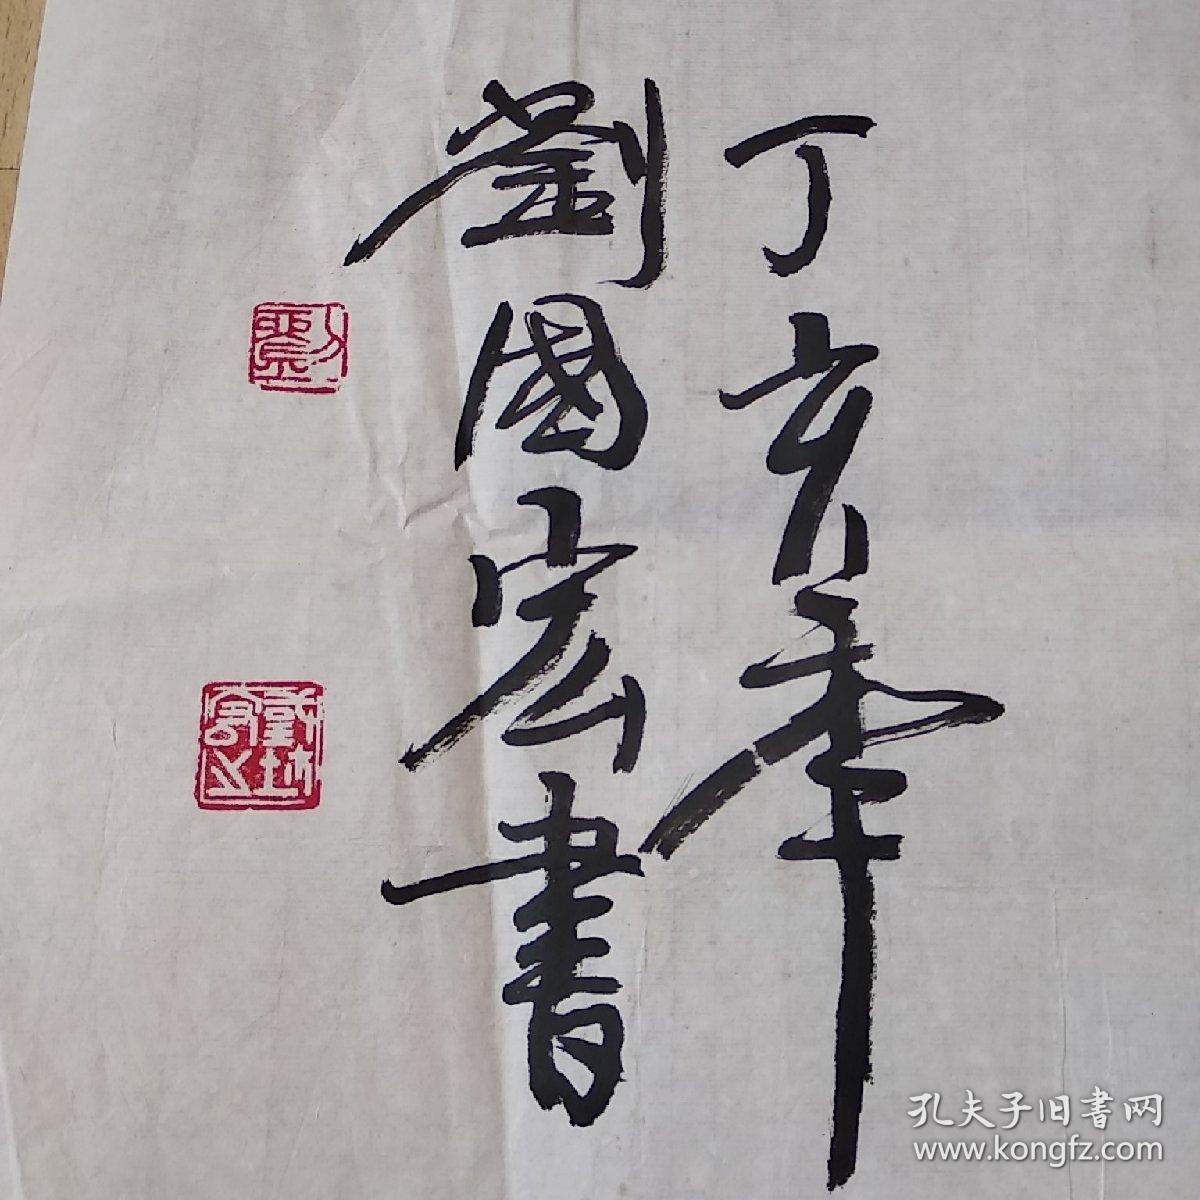 丁亥年
劉國宏書
孔夫子旧書网
www.kongfz.com